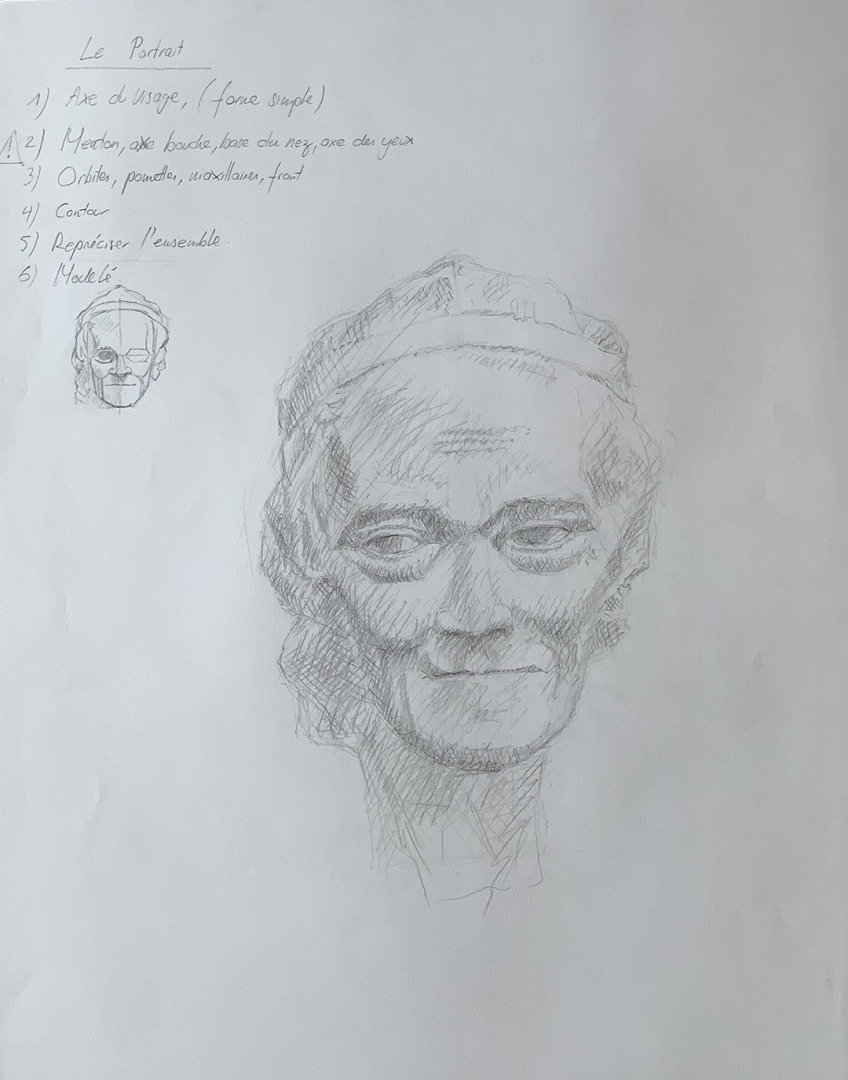 Le Portrait
1) Axe du visage, (forme simple)
2) Menton, axe bouche, base du nez, axe des yeux
3) Orbites, pomettes, maxillaires, front
4) Contour
5) Repréciser l'ensemble.
6) Modelé.